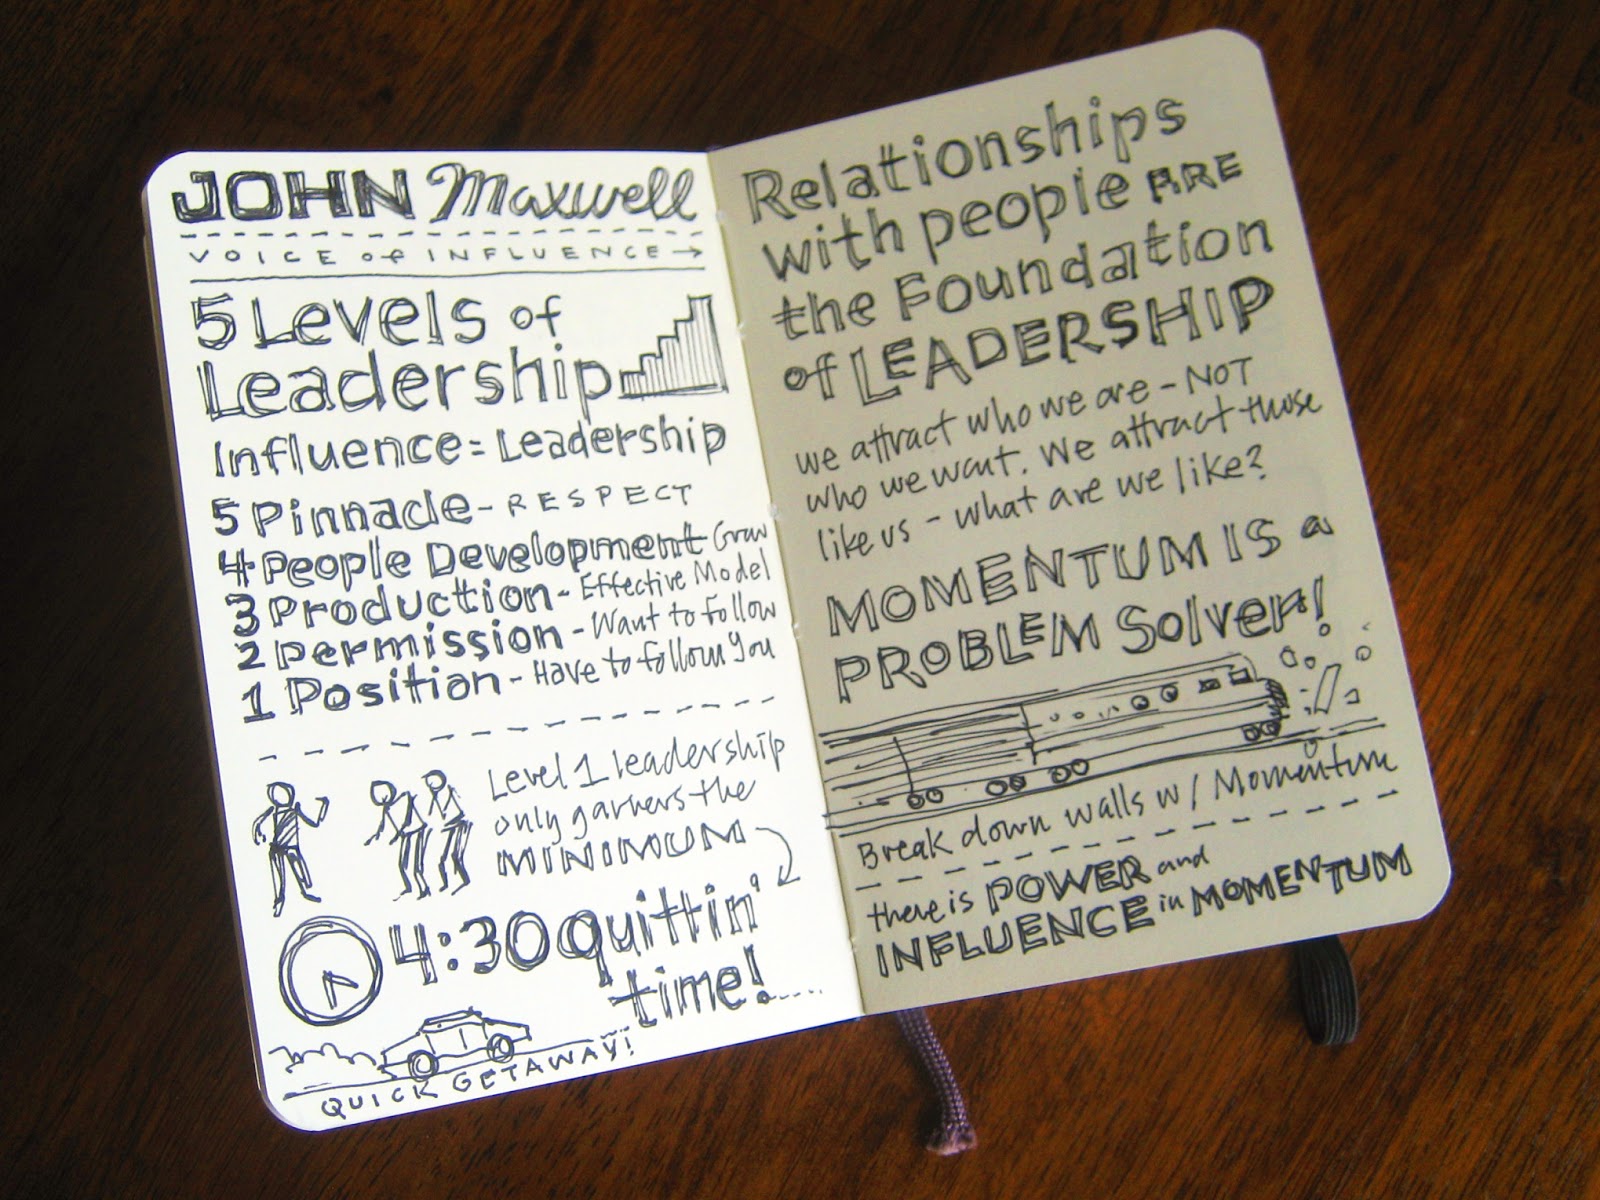 JOHN Maxwell
VOICE of INFLUENCE →
5 Levels of
Leadership
Influence = Leadership
5 Pinnacle - RESPECT
4 People Development Grow
3 Production - Effective Model
2 Permission - Want to follow
1 Position - Have to follow you
Level 1 leadership
only garners the
MINIMUM
4:30 quittin'
time!
QUICK GETAWAY!
Relationships
with people ARE
the Foundation
of LEADERSHIP
we attract who we are - NOT
who we want. We attract those
like us - what are we like?
MOMENTUM IS a
PROBLEM Solver!
Break down walls w/ Momentum
there is POWER and
INFLUENCE in MOMENTUM